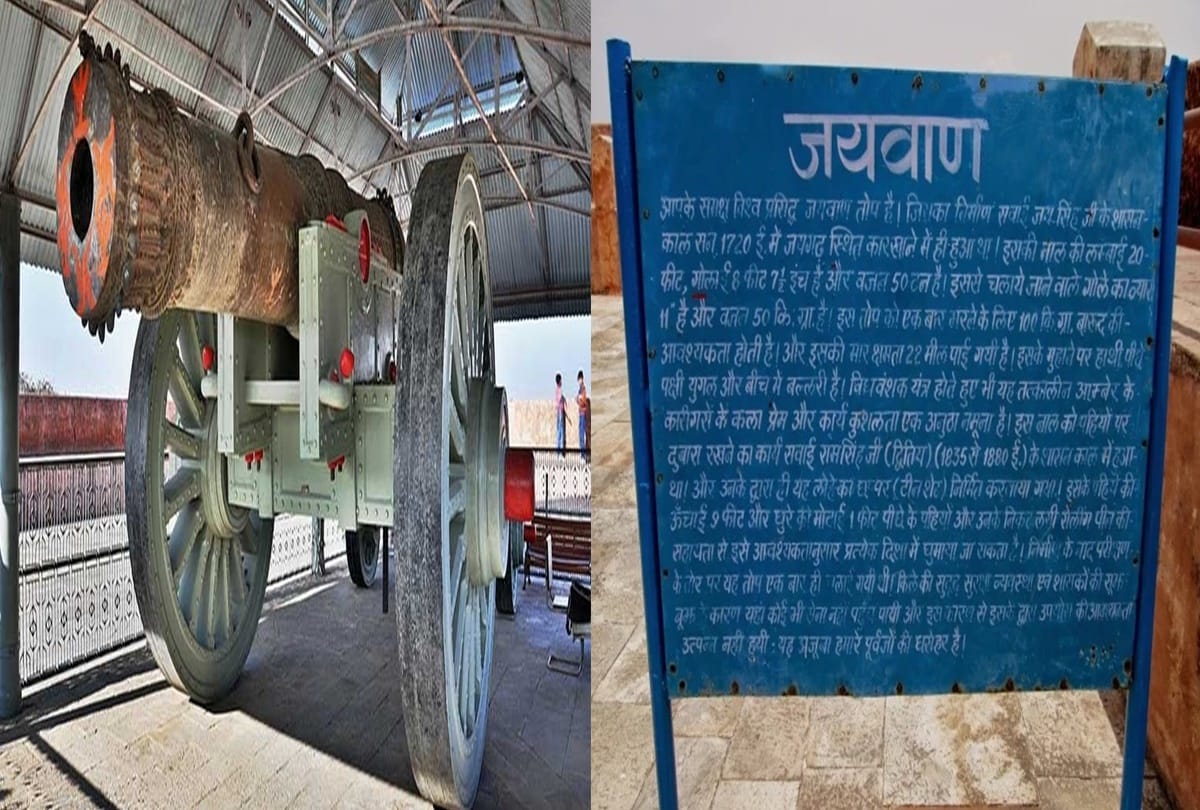 जयवाण
आपके समक्ष विश्व प्रसिद्ध जयवाण तोप है। जिसका निर्माण सवाई जय सिंह जी के शासन-
काल सन् 1720 ई. में जयगढ़ स्थित कारखाने में ही हुआ था। इसकी नाल की लम्बाई 20-
फीट, गोलाई 8 फीट 7½ इंच है और वजन 50 टन है। इससे चलाये जाने वाले गोले का व्यास
11" है और वजन 50 कि. ग्रा. है। इस तोप को एक बार भरने के लिए 100 कि. ग्रा. बारूद की-
आवश्यकता होती है। और इसकी मार क्षमता 22 मील पाई गयी है। इसके मुहाने पर हाथी, पीछे
पक्षी युगल और बीच में बल्लरी है। विध्वंशक यंत्र होते हुए भी यह तत्कालीन आम्बेर के
कारीगरों के कला प्रेम और कार्य कुशलता एक अनुठा नमूना है। इस नाल को पहियों पर
दुबारा रखने का कार्य सवाई रामसिंह जी (द्वितिय) (1835 से 1880 ई.) के शासन काल में हुआ
था। और उनके द्वारा ही यह लोहे का छप्पर (टीन शेड) निर्मित करवाया गया। इसके पहिये की
ऊँचाई 9 फीट और धुरे की मोटाई 1 फीट पीछे के पहियों और उनके निकट लगी रोलींग पीन की-
सहायता से इसे आवश्यकतानुसार प्रत्येक दिशा में घुमाया जा सकता है। निर्माण के बाद परीक्षण-
के तौर पर यह तोप एक बार ही चलाई गयी थी। किले की सुदृढ़ सुरक्षा व्यवस्था एवं शासकों की सूझ-
बूझ के कारण यहां कोई भी सेना नहीं पहुँच पायी और इस कारण से इसके द्वारा उपयोग की आवश्यकता
उत्पन्न नही हुयी : यह अजूबा हमारे पूर्वजों की धरोहर है।